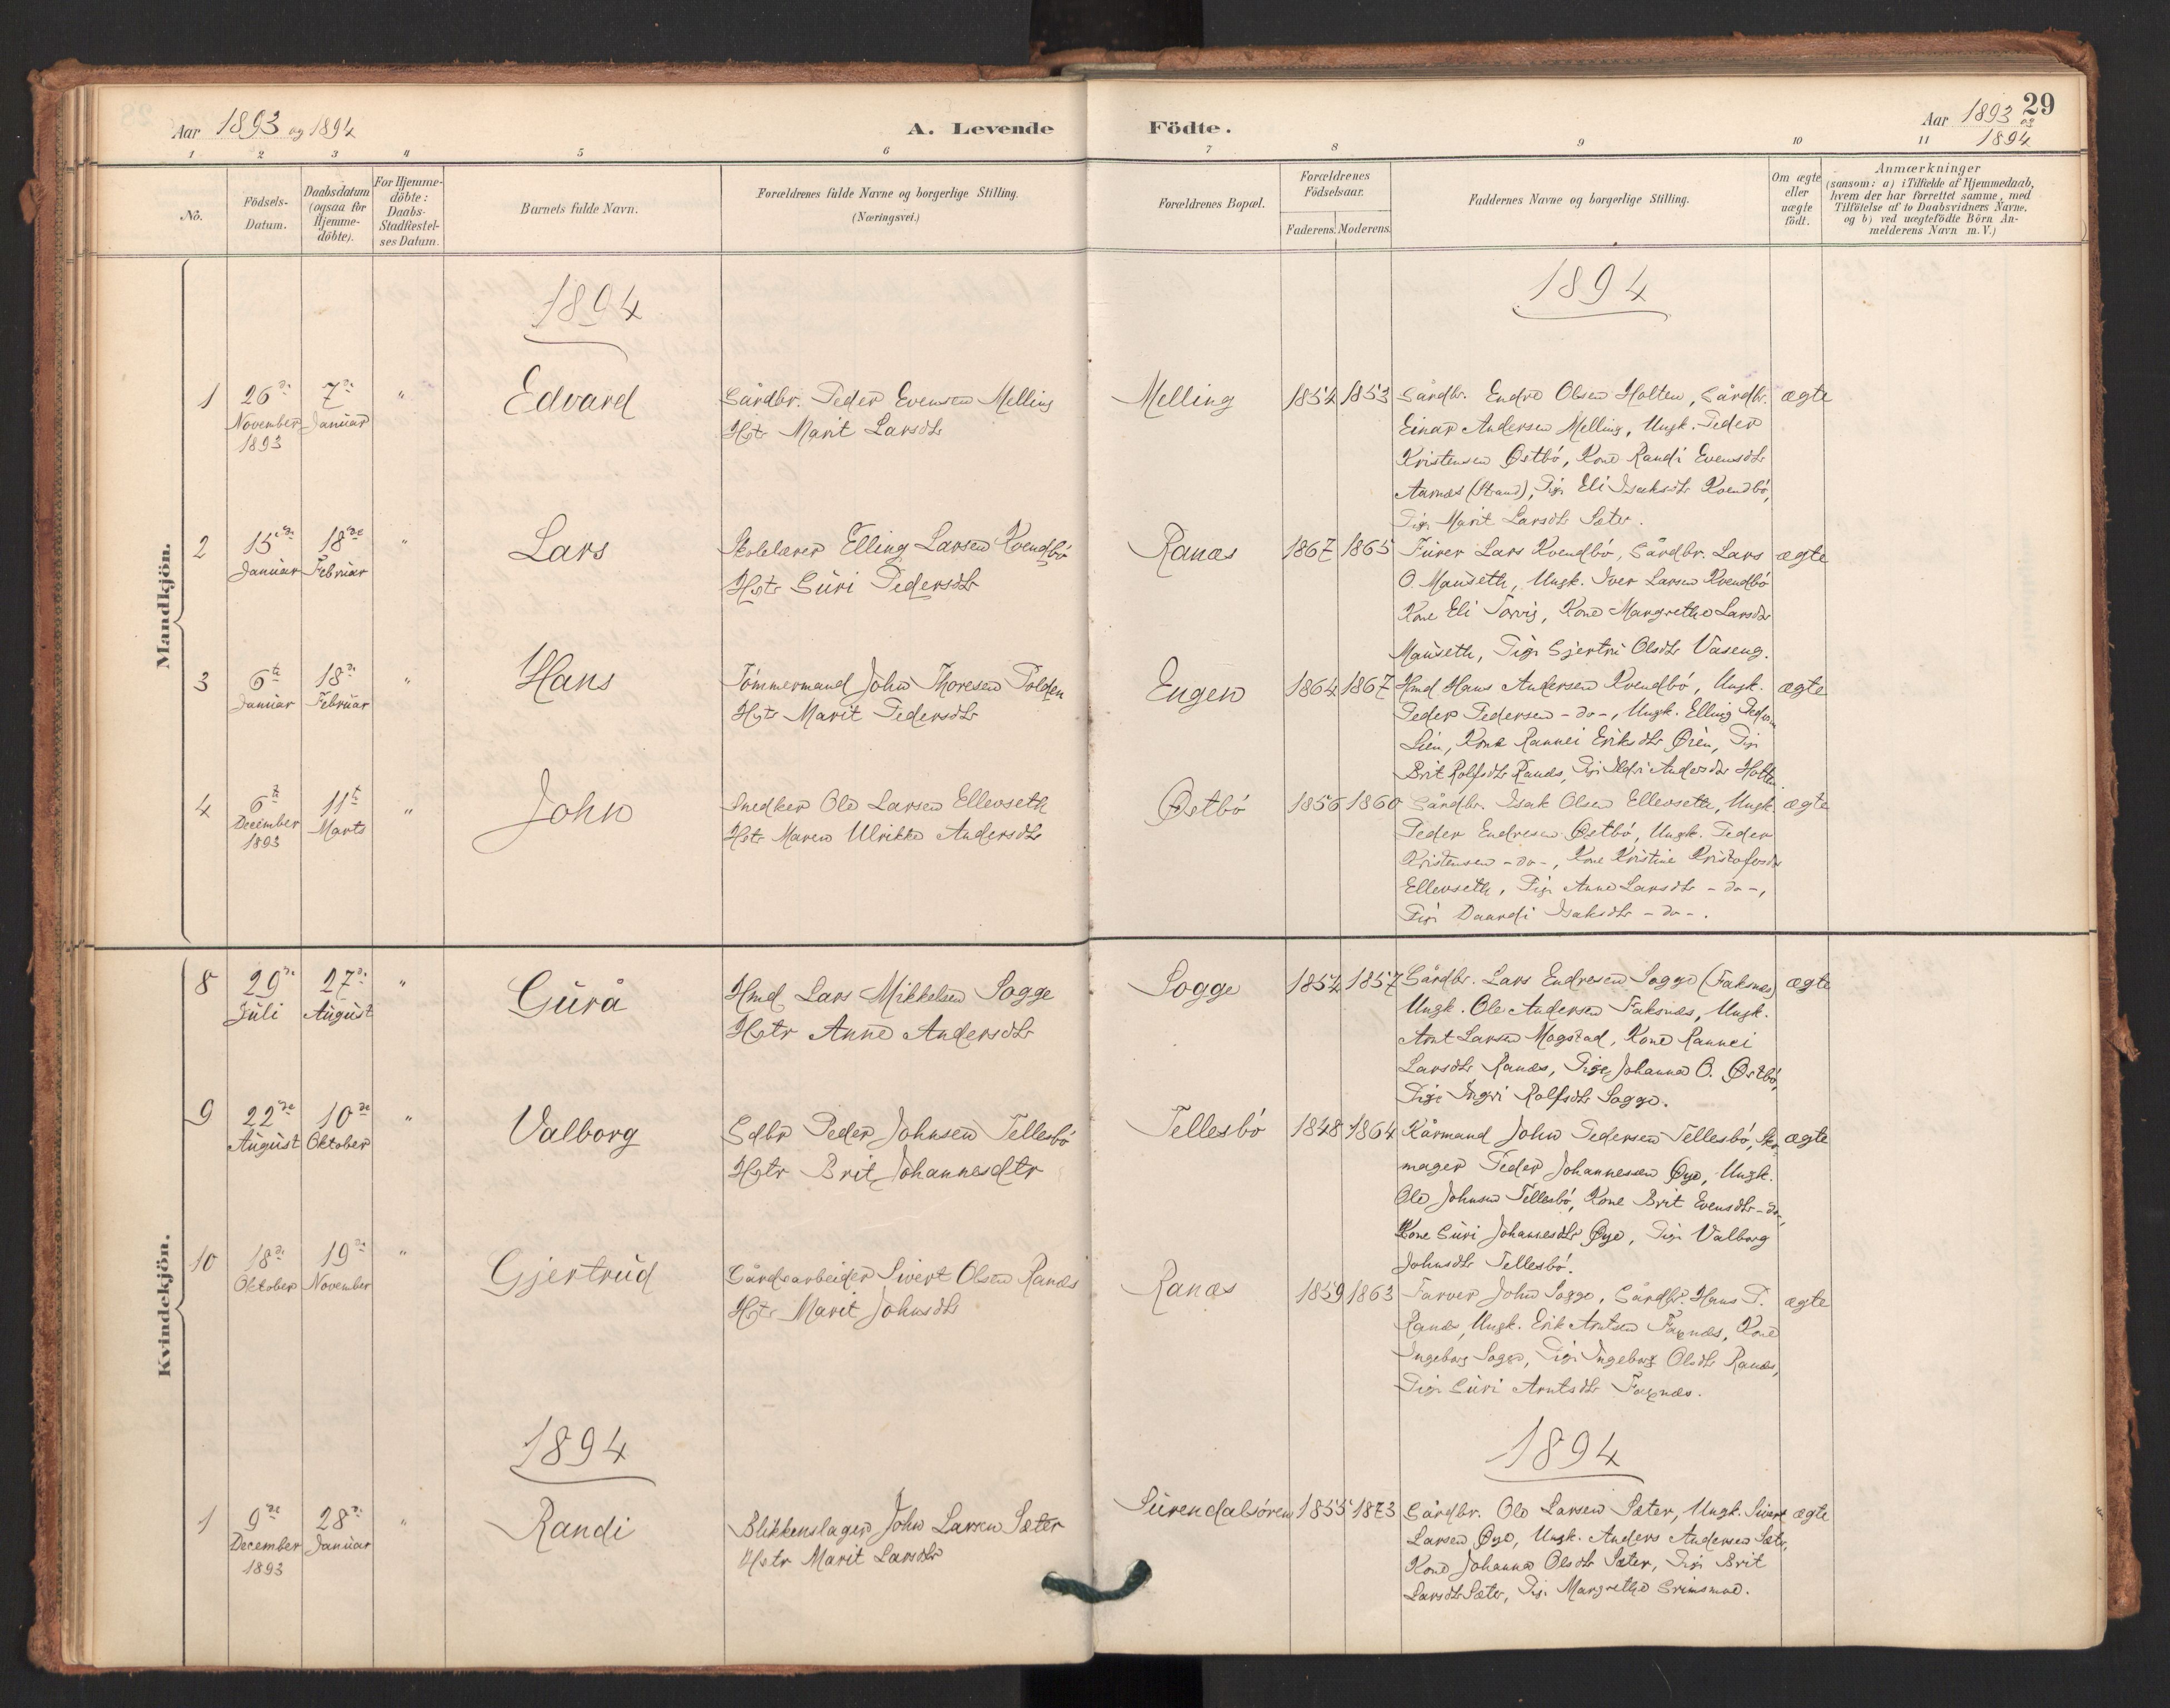 Aar 1893 og 1894
A. Levende Födte.
Aar 1893 og 1894
29
1 2 3 4 5 6 7 8 9 10 11
No.
Födsels-Datum.
Daabsdatum (ogsaa for Hjemme-döbte).
For Hjemme-döbte: Daabs-Stadfestel-ses Datum.
Barnets fulde Navn.
Forældrenes fulde Navne og borgerlige Stilling. (Næringsvei.)
Forældrenes Bopæl.
Forældrenes Födselsaar.
Faderens. Moderens.
Faddernes Navne og borgerlige Stilling.
Om ægte eller uægte födt.
Anmærkninger
(saasom: a) i Tilfælde af Hjemmedaab,
hvem der har forrettet samme, med
Tilföielse af to Daabsvidners Navne,
og b) ved uægtefödte Börn An-
melderens Navn m. V.)
Mandkjön.
1894
1894
1 26de November 1893 7de Januar " Edvard
Gårdbr. Peder Evensen Melling
Hstr Marit Larsdtr
Melling 1854 1853
Gårdbr. Endre Olsen Holten, Gårdbr.
Einar Andersen Melling, Ungk. Peder
Kristensen Østbö, Kone Randi Evensdtr
Aarnæs (Strand), Pige Eli Isaksdtr Kvendbö,
Pige Marit Larsdtr Sæter.
ægte
2 15de Januar 18de Februar " Lars
Skolelærer Elling Larsen Kvendbö
Hstr Guri Pedersdtr
Ranæs 1867 1865
Furer Lars Kvendbö, Gårdbr. Lars
O. Mauseth, Ungk. Iver Larsen Kvendbö
Kone Eli Torvig, Kone Margrethe Larsdtr
Mauseth, Pige Gjertru Olsdtr Vaseng.
ægte
3 6te Januar 18de Februar " Hans
Tömmermand John Thoresen Polden
Hstr Marit Pedersdtr
Engen 1864 1867
Hmd. Hans Andersen Kvendbö, Ungk.
Peder Pedersen -do-, Ungk. Elling Pedersen
Lien, Kone Rannei Eriksdtr Øien, Pige
Brit Rolfsdtr Ranæs, Pige Ildri Andersdtr Holten
ægte
4 6te December 1893 11te Marts " John
Snedker Ole Larsen Ellevseth
Hstr Maren Ulrikke Andersdtr
Østbö 1856 1860
Gårdbr. Isak Olsen Ellevseth, Ungk.
Peder Endresen Østbö, Ungk. Peder
Kristensen -do-, Kone Kristine Kristofersdtr
Ellevseth, Pige Anne Larsdtr -do-,
Pige Daardi Isaksdtr -do-.
ægte
Kvindekjön.
8 29de Juli 27de August " Gurå
Hmd. Lars Mikkelsen Sogge
Hstr Anne Andersdtr
Sogge 1854 1857
Gårdbr. Lars Endresen Sogge (Faksnes)
Ungk. Ole Andersen Faksnæs, Ungk.
Arnt Larsen Mogstad, Kone Rannei
Larsdtr Ranæs, Pige Johanna O. Østbö,
Pige Ingri Rolfsdtr Sogge.
ægte
9 22de August 10de Oktober " Valborg
Gdbr Peder Johnsen Tellesbö
Hstr Brit Johannesdtr
Tellesbö 1848 1864
Kårmand John Pedersen Tellesbö, Sko-
mager Peder Johannesen Øye, Ungk.
Ole Johnsen Tellesbö, Kone Brit Evensdtr -do-,
Kone Guri Johannesdtr Øye, Pige Valborg
Johnsdtr Tellesbö.
ægte
10 18de Oktober 19de November " Gjertrud
Gårdsarbeider Sivert Olsen Ranæs
Hstr Marit Johnsdtr
Ranæs 1859 1863
Farver John Sogge, Gårdbr. Hans P.
Ranæs, Ungk. Erik Arntsen Faxnæs, Kone
Ingeborg Sogge, Pige Ingeborg Olsdtr Ranæs,
Pige Guri Arntsdtr Faxnæs.
ægte
1894
1894
1 9de December 1893 28de Januar " Randi
Blikkenslager John Larsen Sæter
Hstr Marit Larsdtr
Surendalsören 1855 1873
Gårdbr. Ole Larsen Sæter, Ungk. Sivert
Larsen Øye, Ungk. Anders Andersen Sæter,
Kone Johanna Olsdtr Sæter, Pige Brit
Larsdtr Sæter, Pige Margrethe Grimsmoe.
ægte